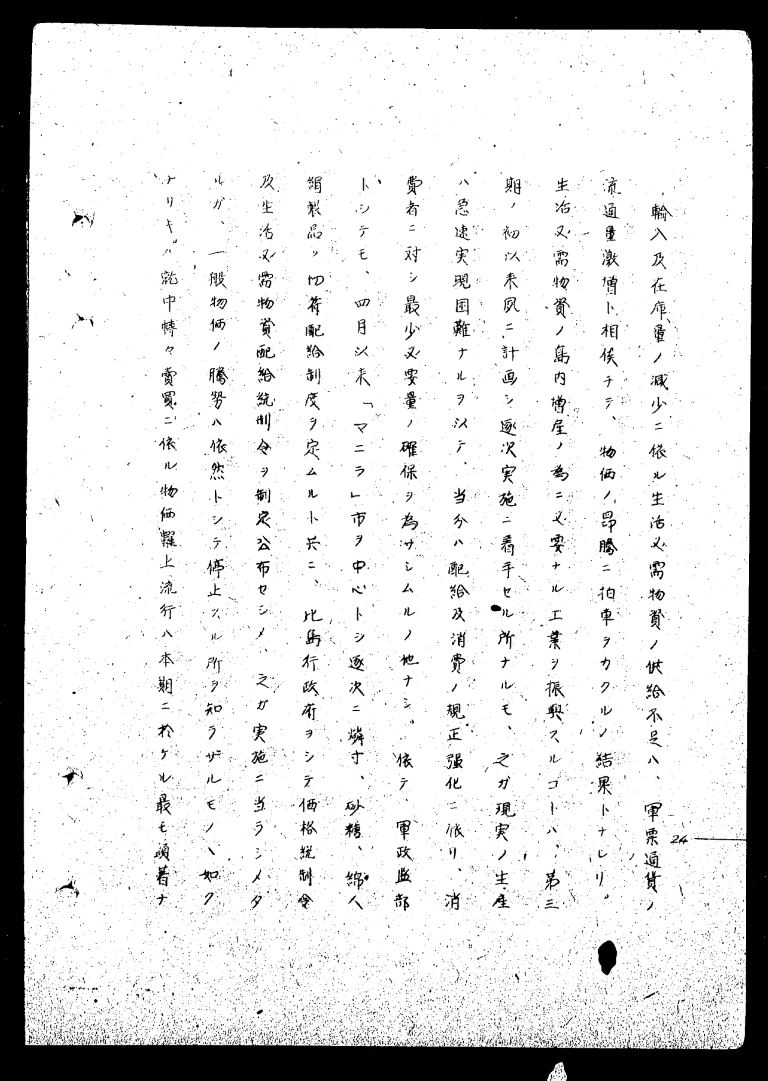 輸入及在庫量ノ減少ニ依ル生活必需物資ノ供給不足ハ、軍票通貨ノ
流通量激増ト相俟チテ、物価ノ昂騰ニ拍車ヲカクルノ結果トナレリ。
生活必需物資ノ島内増産ノ為ニ必要ナル工業ヲ振興スルコトハ、第三
期ノ初以来夙ニ計画シ逐次実施ニ着手セル所ナルモ、之ガ現実ノ生産
ハ急速実現困難ナルヲ以テ、当分ハ配給及消費ノ規正強化ニ依リ、消
費者ニ対シ最少必要量ノ確保ヲ為サシムルノ他ナシ。依テ、軍政監部
トシテモ、四月以来「マニラ」市ヲ中心トシ逐次ニ燐寸、砂糖、綿人
絹製品ノ切符配給制度ヲ定ムルト共ニ、比島行政府ヲシテ価格統制令
及生活必需物資配給統制令ヲ制定公布セシメ、之ガ実施ニ当ラシメタ
ルガ、一般物価ノ騰勢ハ依然トシテ停止スル所ヲ知ラザルモノヽ如ク
ナリキ。就中転々賣買ニ依ル物価糶上流行ハ本期ニ於ケル最モ顕著ナ
24